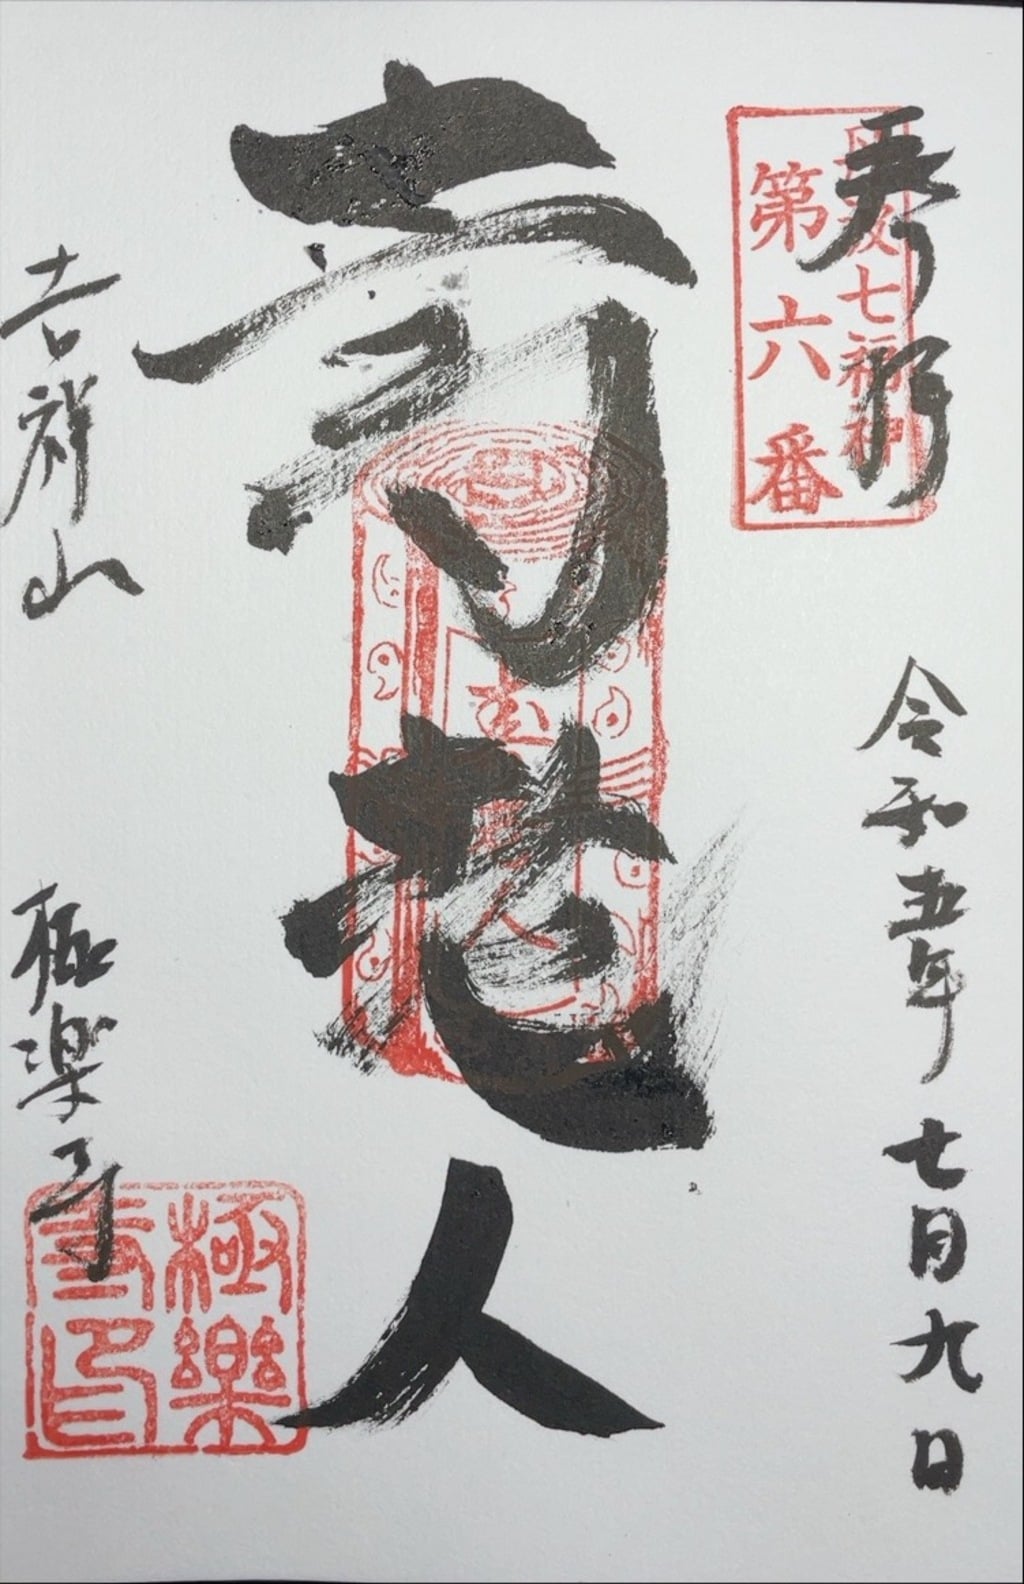 奉拝
丹波七福神
第六番
令和五年七月九日
寿老人
吉祥山
極楽寺
極樂寺印